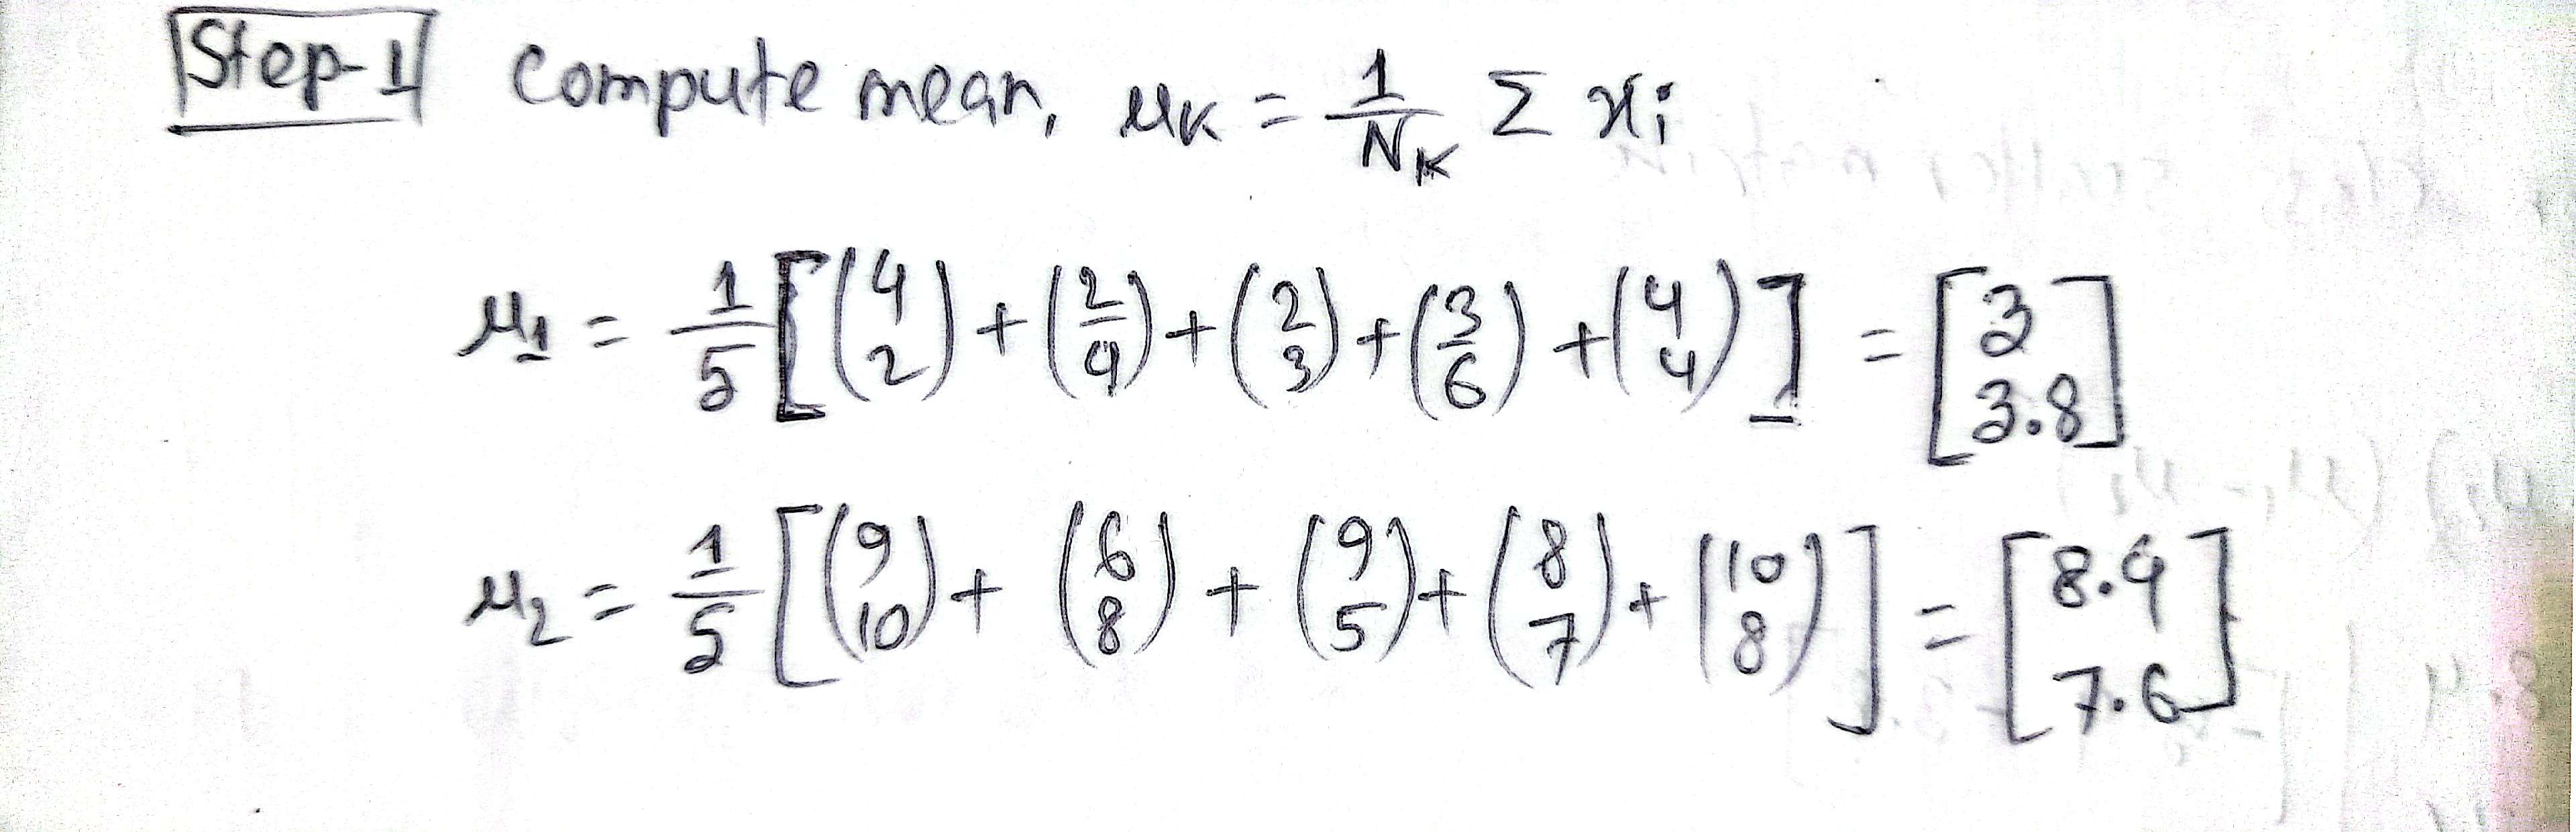 Step-1 Compute mean, μK = 1/NK Σ xi
μ1 = 1/5 [(4 2) + (2 4) + (2 3) + (3 6) + (4 4)] = [3 3.8]
μ2 = 1/5 [(9 10) + (6 8) + (9 5) + (8 7) + (10 8)] = [8.4 7.6]